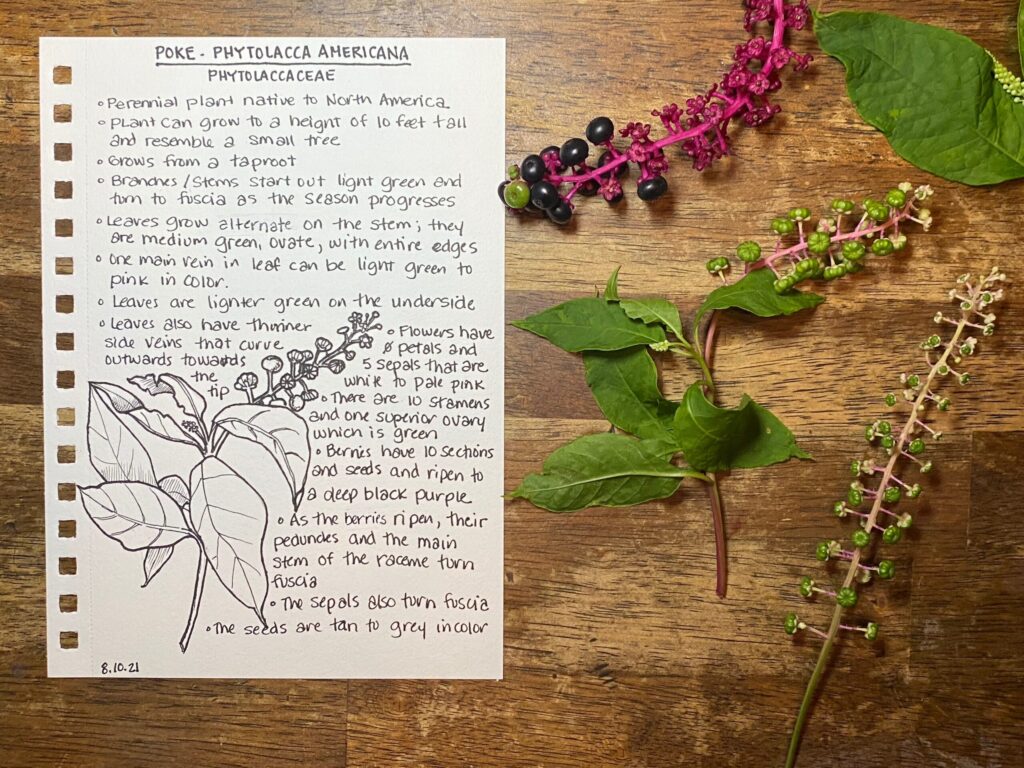 POKE - PHYTOLACCA AMERICANA
PHYTOLACCACEAE
◦ Perennial plant native to North America
◦ Plant can grow to a height of 10 feet tall
and resemble a small tree
◦ Grows from a taproot
◦ Branches/stems start out light green and
turn to fuscia as the season progresses
◦ Leaves grow alternate on the stem; they
are medium green, ovate, with entire edges
◦ One main vein in leaf can be light green to
pink in color.
◦ Leaves are lighter green on the underside
◦ Leaves also have thinner
side veins that curve
outwards towards
the
tip
◦ Flowers have
∅ petals and
5 sepals that are
white to pale pink
◦ There are 10 stamens
and one superior ovary
which is green
◦ Berries have 10 sections
and seeds and ripen to
a deep black purple
◦ As the berries ripen, their
peduncles and the main
stem of the raceme turn
fuscia
◦ The sepals also turn fuscia
◦ The seeds are tan to grey in color
8.10.21